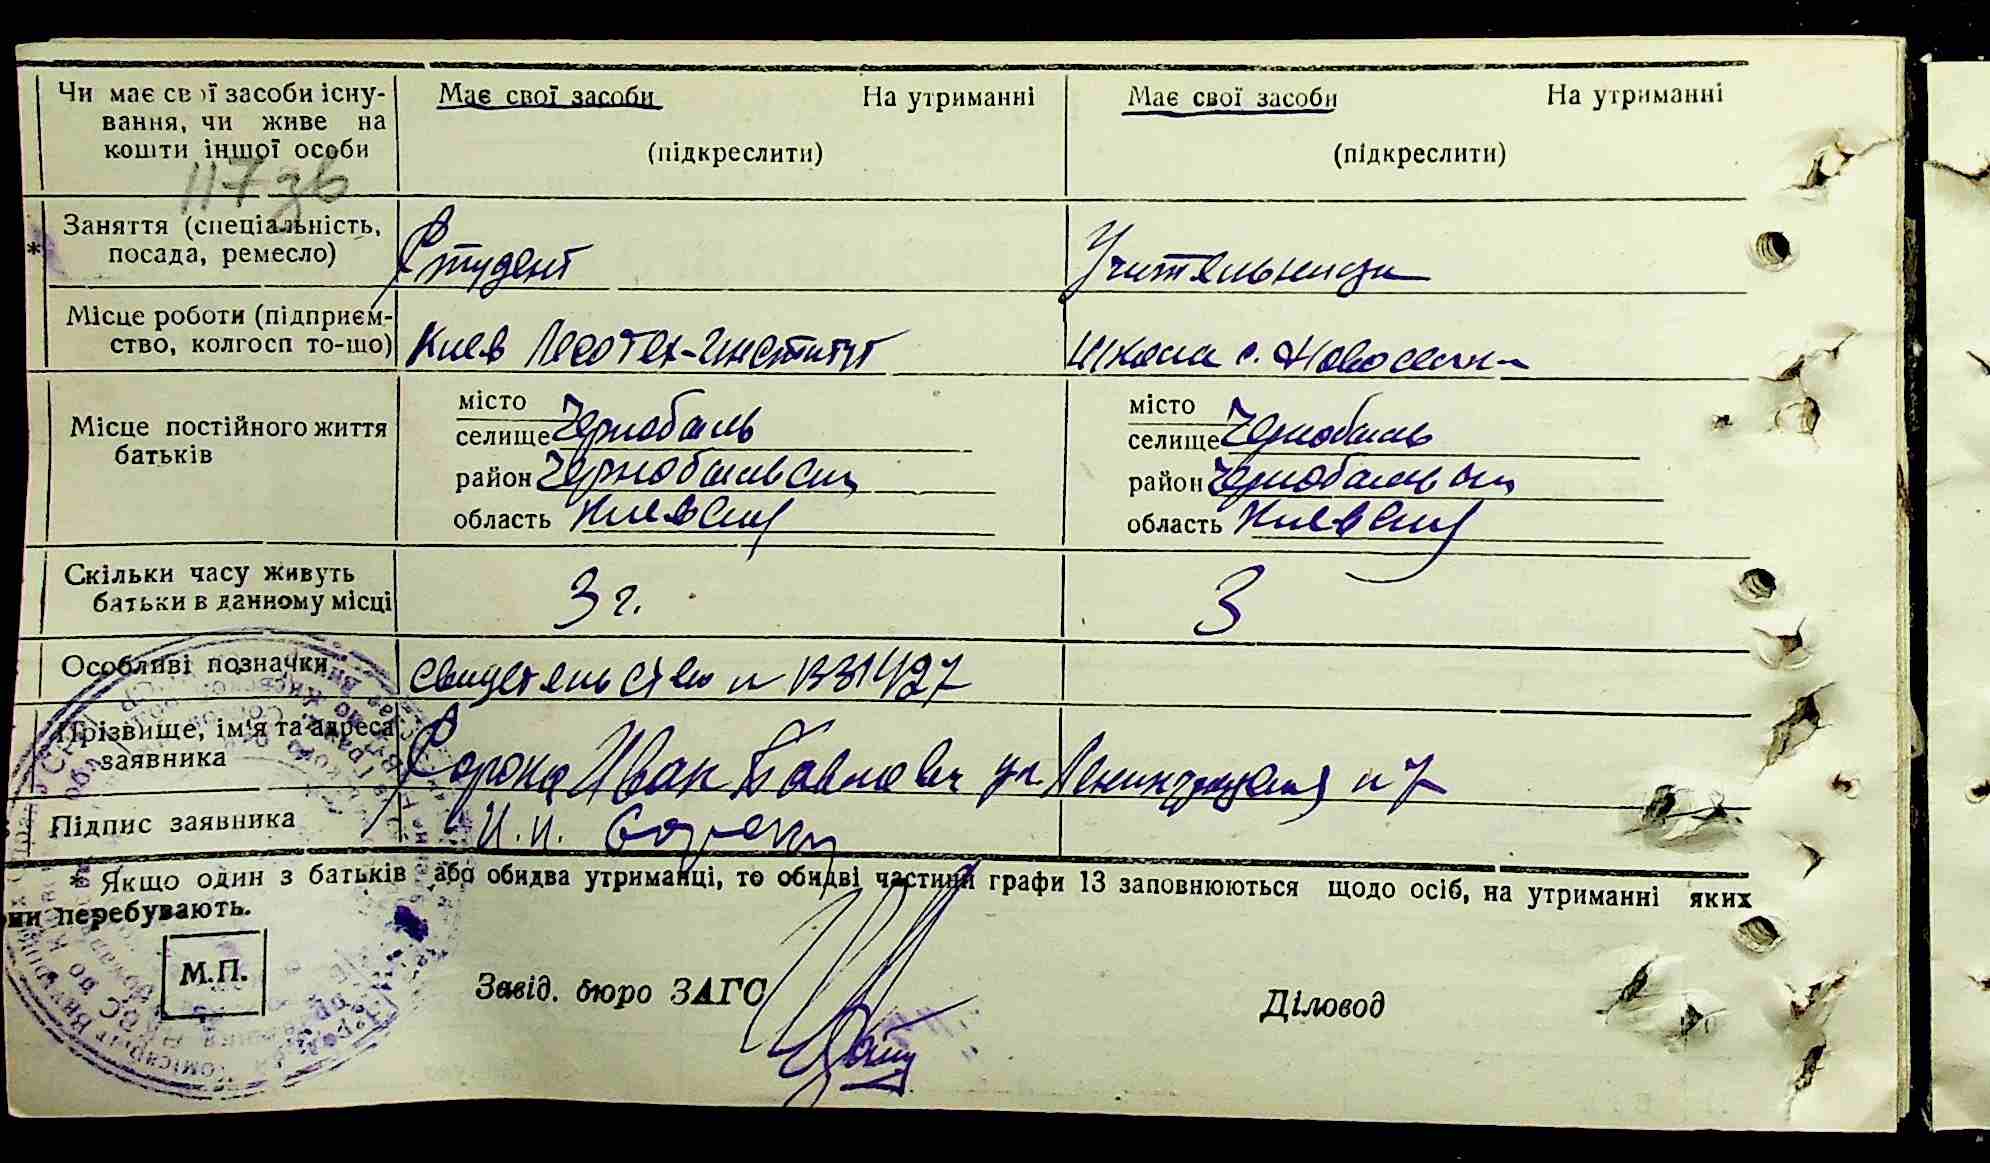 Чи має свої засоби існу-
вання, чи живе на
кошти іншої особи
Має свої засоби На утриманні
(підкреслити)
Має свої засоби На утриманні
(підкреслити)
117зв
* Заняття (спеціальність,
посада, ремесло)
Студент
Учительница
Місце роботи (підприєм-
ство, колгосп то-що)
Киев Лесотех-Институт
Школа с. Новоселки
Місце постійного життя
батьків
місто
селище Чернобыль
район Чернобыльский
область Киевский
місто
селище Чернобыль
район Чернобыльский
область Киевский
Скільки часу живуть
батьки в данному місці
3 г.
3
Особливі позначки
Свидетельство n
Прізвище, ім'я та адреса
заявника
Сорока Иван Павлович ул Ленинградская n 7
Підпис заявника
И.П. Сорока
* Якщо один з батьків або обидва утриманці, то обидві частини графи 13 заповнюються щодо осіб, на утриманні яких
они перебувають.
М.П.
Завід. бюро ЗАГС
Діловод